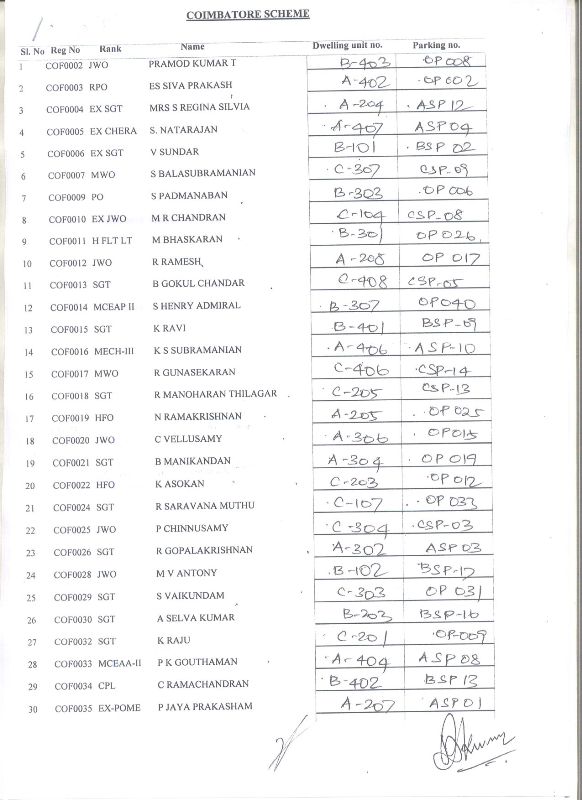 COIMBATORE SCHEME
Sl. No Reg No Rank Name Dwelling unit no. Parking no.
1 COF0002 JWO PRAMOD KUMAR T B-403 OP 008
2 COF0003 RPO ES SIVA PRAKASH A-402 OP 002
3 COF0004 EX SGT MRS S REGINA SILVIA A-204 ASP 12
4 COF0005 EX CHERA S. NATARAJAN A-407 ASP 04
5 COF0006 EX SGT V SUNDAR B-101 BSP 02
6 COF0007 MWO S BALASUBRAMANIAN C-307 CSP-09
7 COF0009 PO S PADMANABAN B-303 OP 006
8 COF0010 EX JWO M R CHANDRAN C-104 CSP-08
9 COF0011 H FLT LT M BHASKARAN B-301 OP 026
10 COF0012 JWO R RAMESH A-208 OP 017
11 COF0013 SGT B GOKUL CHANDAR C-408 CSP-05
12 COF0014 MCEAP II S HENRY ADMIRAL B-307 OP040
13 COF0015 SGT K RAVI B-401 BSP-09
14 COF0016 MECH-III K S SUBRAMANIAN A-406 ASP-10
15 COF0017 MWO R GUNASEKARAN C-406 CSP-14
16 COF0018 SGT R MANOHARAN THILAGAR C-205 CSP-13
17 COF0019 HFO N RAMAKRISHNAN A-205 OP 025
18 COF0020 JWO C VELLUSAMY A-306 OP015
19 COF0021 SGT B MANIKANDAN A-304 OP 019
20 COF0022 HFO K ASOKAN C-203 OP 012
21 COF0024 SGT R SARAVANA MUTHU C-107 OP 033
22 COF0025 JWO P CHINNUSAMY C-304 CSP-03
23 COF0026 SGT R GOPALAKRISHNAN A-302 ASP 03
24 COF0028 JWO M V ANTONY B-102 BSP-12
25 COF0029 SGT S VAIKUNDAM C-303 OP 031
26 COF0030 SGT A SELVA KUMAR B-203 BSP-16
27 COF0032 SGT K RAJU C-201 OP-009
28 COF0033 MCEAA-II P K GOUTHAMAN A-404 ASP 08
29 COF0034 CPL C RAMACHANDRAN B-402 BSP 13
30 COF0035 EX-POME P JAYA PRAKASHAM A-207 ASP 01